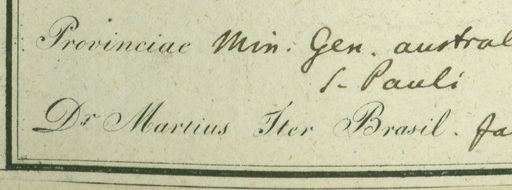 Provinciae Min. Gen. austral
S. Pauli
Dr Martius Iter Brasil.